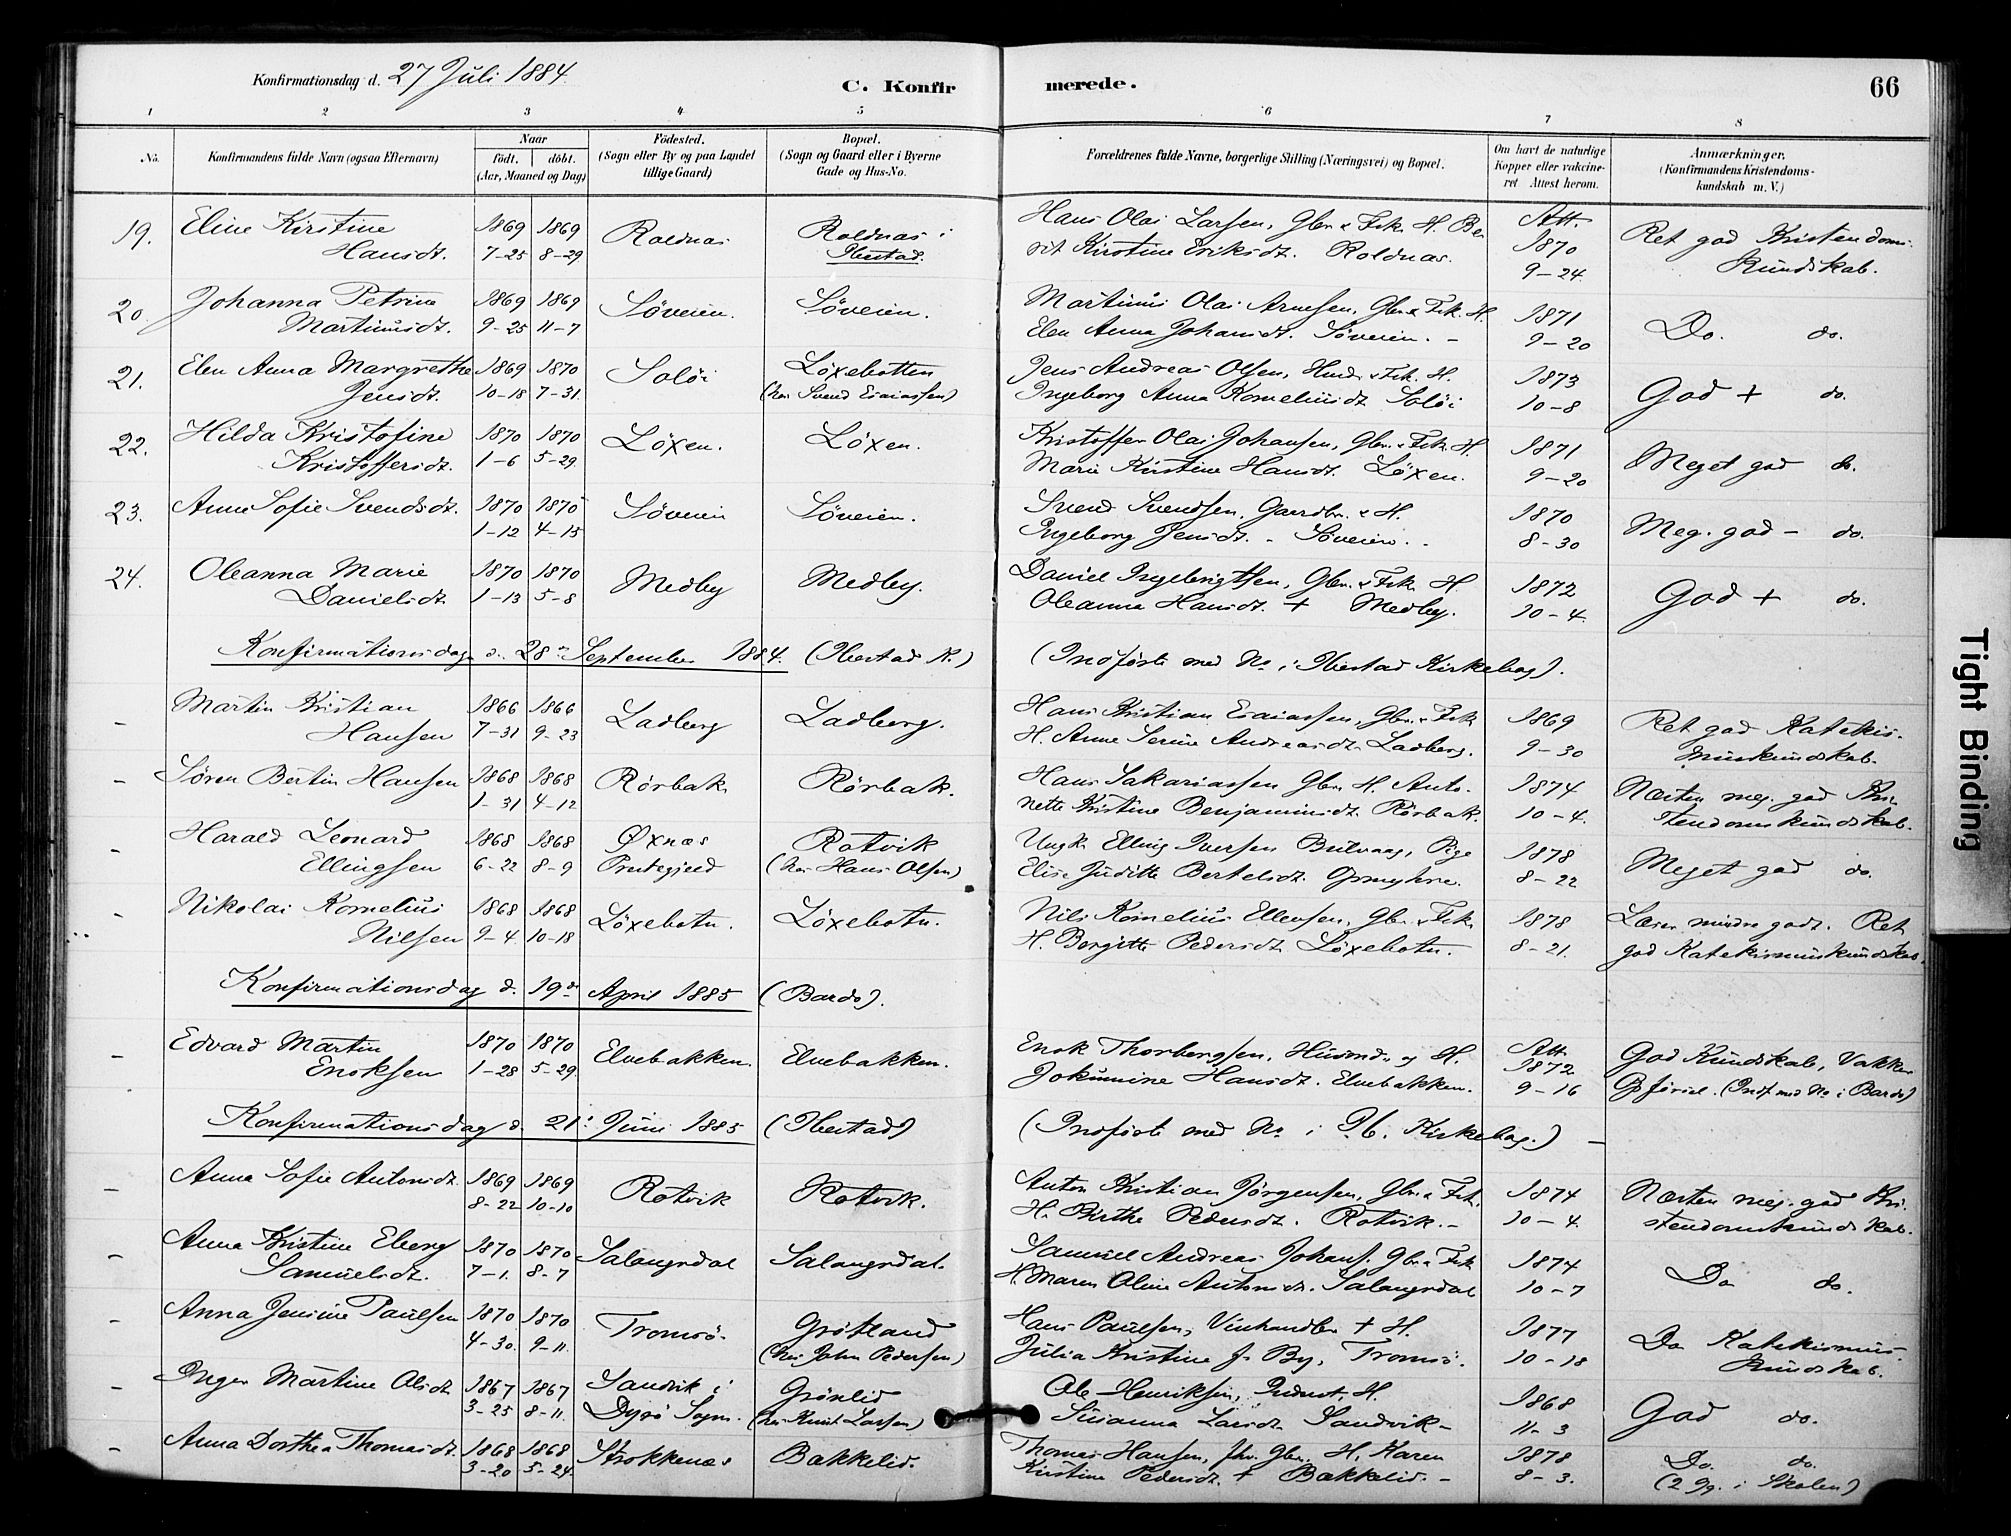 Konfirmationsdag d. 27 Juli 1884.
C. Konfirmerede.
66
1 2 3 4 5 6 7 8
No.
Konfirmandens fulde Navn (ogsaa Efternavn)
Naar
født. døbt.
(Aar, Maaned og Dag)
Fødested.
(Sogn eller By og paa Landet
tillige Gaard)
Bopæl.
(Sogn og Gaard eller i Byerne
Gade og Hus-No.
Forældrenes fulde Navne, borgerlige Stilling (Næringsvei) og Bopæl.
Om havt de naturlige
Kopper eller vakcine-
ret Attest herom.
Anmærkninger.
(Konfirmandens Kristendoms-
kundskab m. V.)
19. Eline Kirstine 1869 1869 Roldnæs Roldnæs i Hans Olai Larsen, Gbr. & Fisk. H. Be- Att. 1870 Ret god Kristendoms-
Hansdt. 7-25 8-29 Ibestad. rit Kirstine Eriksdt. Roldnæs. 9-24 kundskab.
20. Johanna Petrine 1869 1869 Søveien. Søveien. Martinus Olai Arnesen, Gbr. & Fisk. H. 1871 Do. do.
Martinusdt. 9-25 11-7 Elen Anna Johansdt. Søveien. - 9-20
21. Elen Anna Margrethe 1869 1870 Soløi Løxebotten Jens Andreas Olsen, Husm. & Fisk. H. 1873 God + do.
Jensdt. 10-18 7-31 (hos Svend Esaiassen) Ingeborg Anna Korneliusdt. Soløi 10-8
22. Hilda Kristofine 1870 1870 Løxen. Løxen. Kristoffer Olai Johansen, Gbr. & Fisk. H. 1871 Meget god do.
Kristoffersdt. 1-6 5-29 Marie Kirstine Hansdt. Løxen. 9-20
23. Anne Sofie Svendsdt. 1870 1870 Søveien Søveien. Svend Svendsen, Gaardbr. & H. 1870 Meg. god - do.
1-12 4-15 Ingeborg Jensdt. - Søveien. - 8-30
24. Oleanna Marie 1870 1870 Medby Medby. Daniel Ingebrigtsen, Gbr. & Fisk. H. 1872 God + do.
Danielsdt. 1-13 5-8 Oleanna Hansdt. + Medby. 10-4
Konfirmationsdag d. 28de September 1884. (Ibestad K.) (Indførte med No. i Ibestad Kirkebog).
- Martin Kristian 1866 1866 Ladberg Ladberg. Hans Kristian Esaiassen, Gbr. & Fisk. 1869 Ret god Katekis-
Hansen 7-31 9-23 H. Anne Serine Andreasdt. Ladberg. 9-30 muskundskab.
- Søren Bertin Hansen 1868 1868 Rørbak Rørbak. Hans Sakariassen Gbr. H. Anto- 1874 Næsten meg. god Kri-
1-31 4-12 nette Kristine Benjaminsdt. Rørbak. 10-4. stendomskundskab.
- Harald Leonard 1868 1868 Øxnæs Rotvik Ungk. Elling Iversen, Pige 1878 Meget god do.
Ellingsen 6-22 8-9 Præstegjeld (hos Hans Olsen) Elise Juditte Bertelsdt. 8-22
- Nikolai Kornelius 1868 1868 Løxebotn. Løxebotn. Nils Kornelius Ellensen, Gbr. & Fisk. 1878 Læser mindre godt. Ret
Nilsen 9-4. 10-18 H. Bergitte Pedersdt. Løxebotn. 8-21. god Katekismuskundskab.
Konfirmationsdag d. 19de April 1885 (Bardo).
- Edvard Martin 1870 1870 Elvebakken. Elvebakken. Enok Thorbergsen, Husmd. og H. Att. 1872 God Kundskab, Vakker
Enoksen 1-28 5-29 Jokumine Hansdt. Elvebakken. 9-16 Opførsel. (Indf. med No. i Bardo)
Konfirmationsdag d. 21. Juni 1885 (Ibestad) (Indførte med No. i Ib. Kirkebog.) -
- Anna Sofie Antonsdt. 1869 1869 Rotvik Rotvik. Anton Kristian Jørgensen, Gbr. & Fisk. 1874 Næsten meg. god Kri-
8-22 10-10 H. Birthe Pedersdt. Rotvik. - 10-4. stendomskundskab.
- Anna Kristine Eberg 1870 1870 Salangsdal Salangsdal. Samuel Andreas Johans. Gbr. & Fisk 1874 Do do.
Samuelsdt. 7-1. 8-7 H. Maren Oline Antonsdt. Salangsdal 10-7
- Anna Jensine Paulsen 1870 1870 Tromsø. Grøtland Hans Paulsen, Vinhandler + H. 1877 Do Katekismus-
4-30. 9-11. (hos John Pedersen) Julia Kristine f. By, Tromsø. 10-18 kundskab.
- Inger Martine Olsdt. 1867 1867 Sandvik i Grønlid Ole Henriksen, Inderst, H. 1868 God do.
3-25 8-11. Dyrø Sogn. (hos Knut Larsen) Susanna Larsdt. Sandvik - 11-3
- Anna Dorthea Thomasdt. 1868 1868 Strokkenæs Bakkelid. Thomas Hansen, fhv. Gbr. H. Karen 1878 Do. do.
3-20 5-24 Kirstine Pedersdt. + Bakkelid. - 8-3. (2 Gg. i Skolen)
Tight Binding